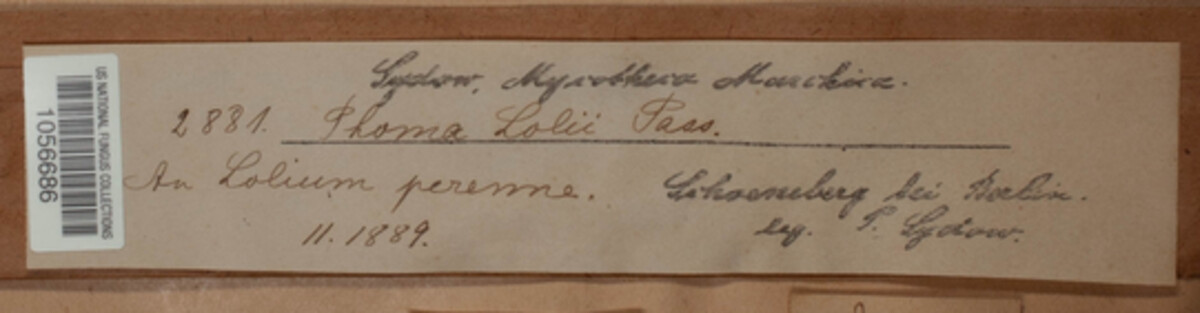 Sydow, Mycotheca Marchica.
2881. Phoma Lolii Pass.
An Lolium perenne. Schoeneberg bei Berlin.
11. 1889. leg. P. Sydow.
US NATIONAL FUNGUS COLLECTIONS
1056686